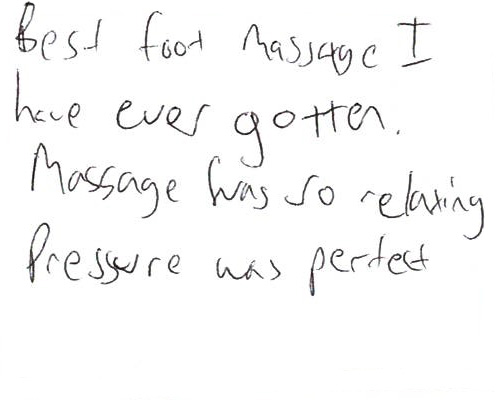 Best foot massage I
have ever gotten.
Massage was so relaxing
Pressure was perfect